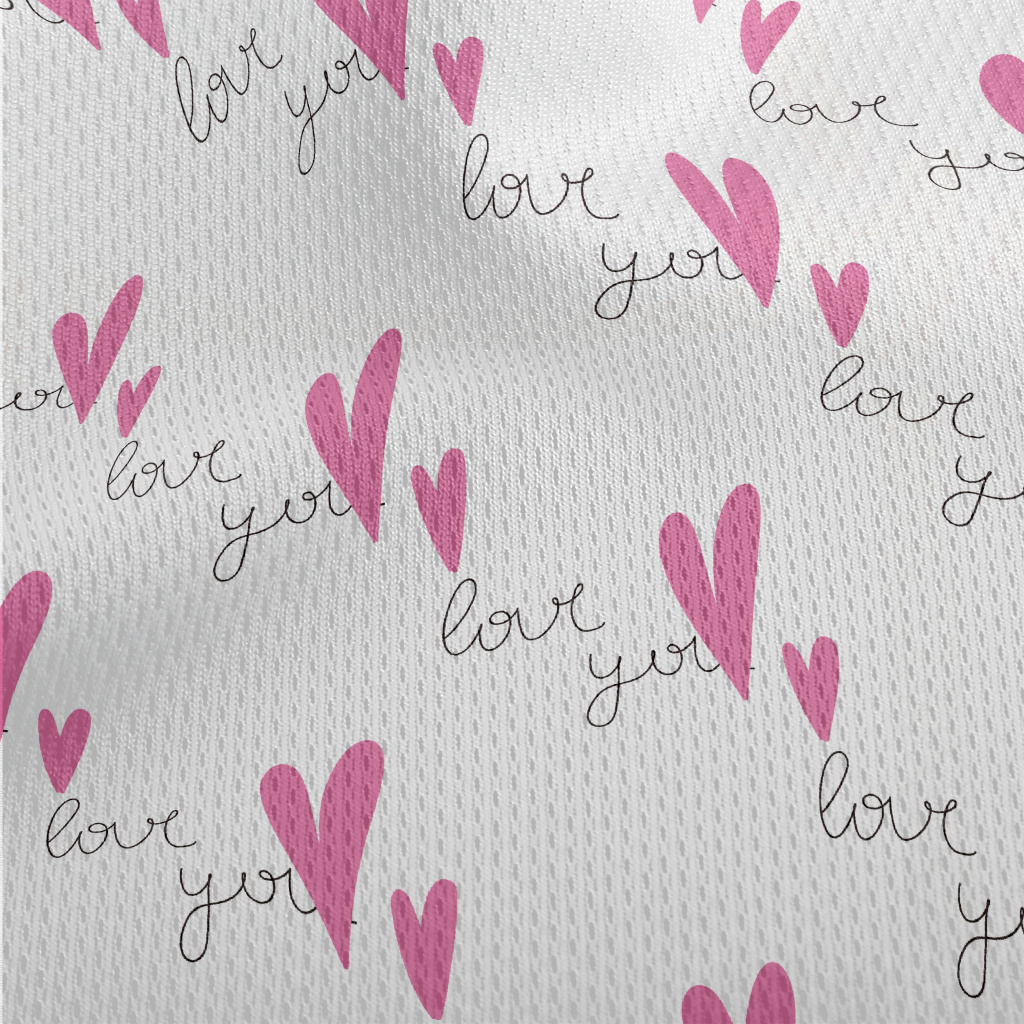 love
you
love
you
love
you
love
love
you
love
you
love
love
you